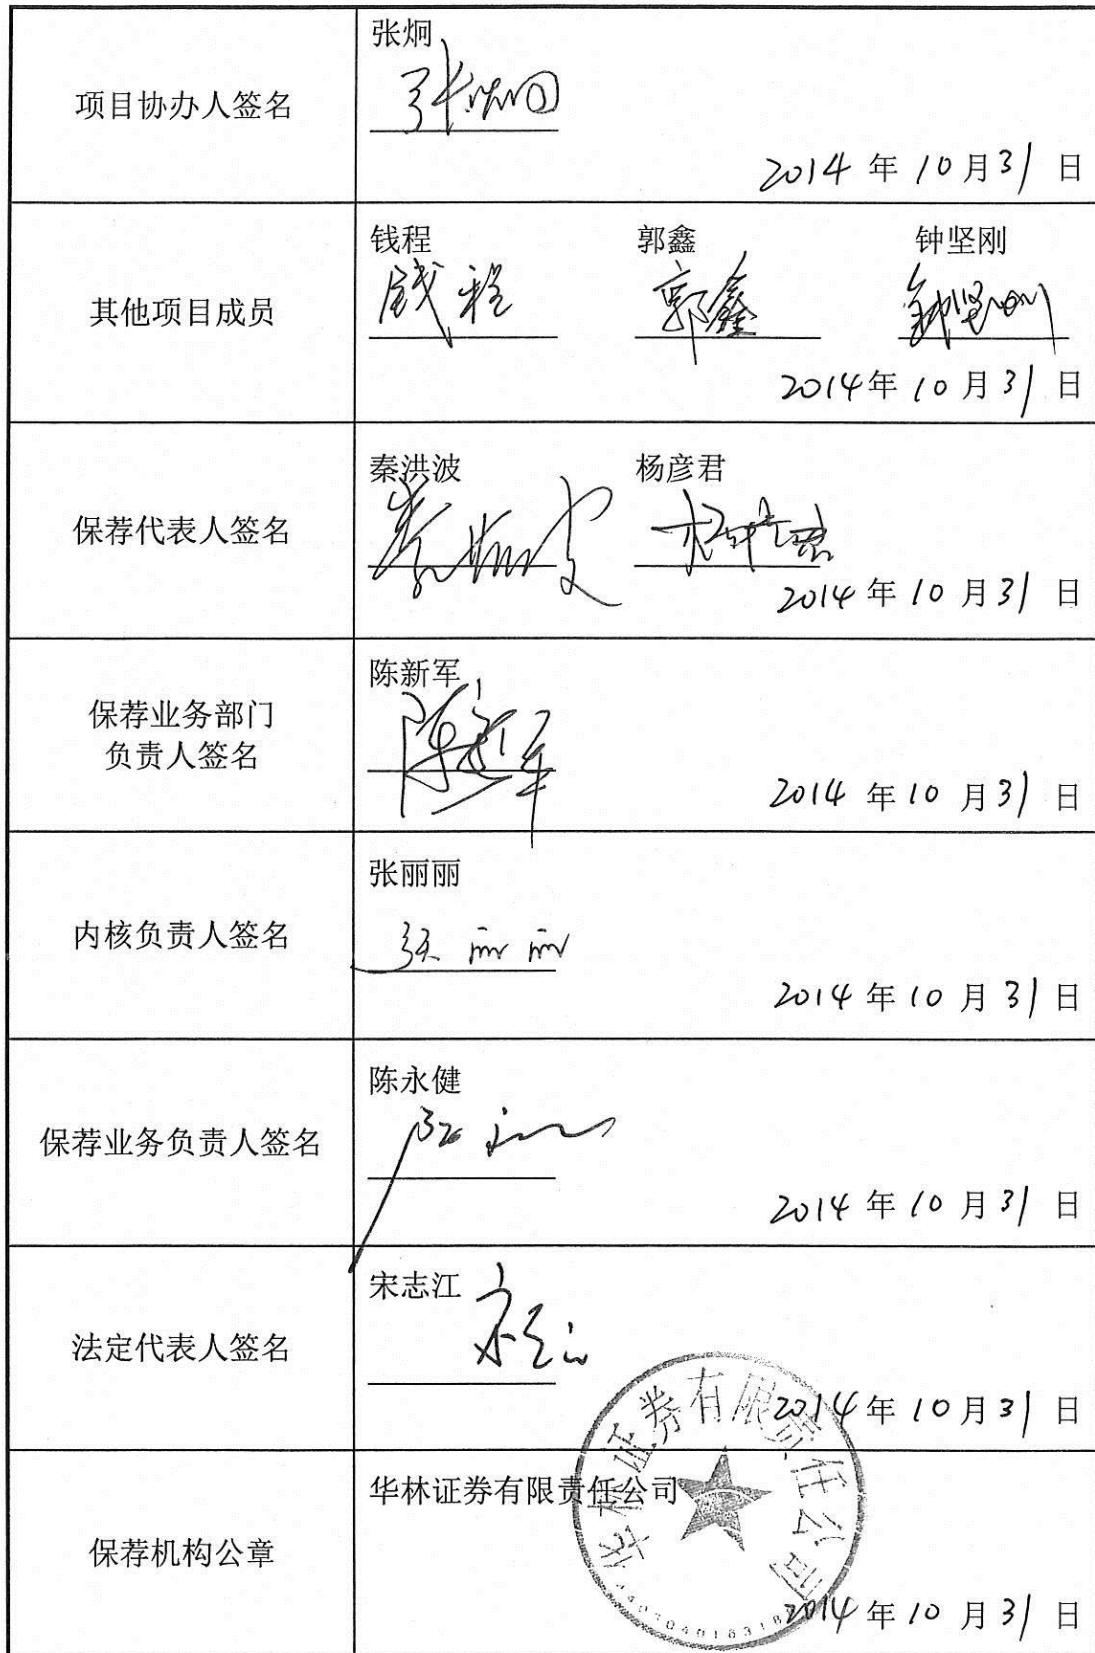 项目协办人签名
张炯
张炯
2014 年 10 月 31 日
其他项目成员
钱程 郭鑫 钟坚刚
钱程 郭鑫 钟坚刚
2014 年 10 月 31 日
保荐代表人签名
秦洪波 杨彦君
秦洪波 杨彦君
2014 年 10 月 31 日
保荐业务部门
负责人签名
陈新军
陈新军
2014 年 10 月 31 日
内核负责人签名
张丽丽
张丽丽
2014 年 10 月 31 日
保荐业务负责人签名
陈永健
2014 年 10 月 31 日
法定代表人签名
宋志江
宋志江
2014 年 10 月 31 日
保荐机构公章
华林证券有限责任公司
华林证券有限责任公司
2014 年 10 月 31 日